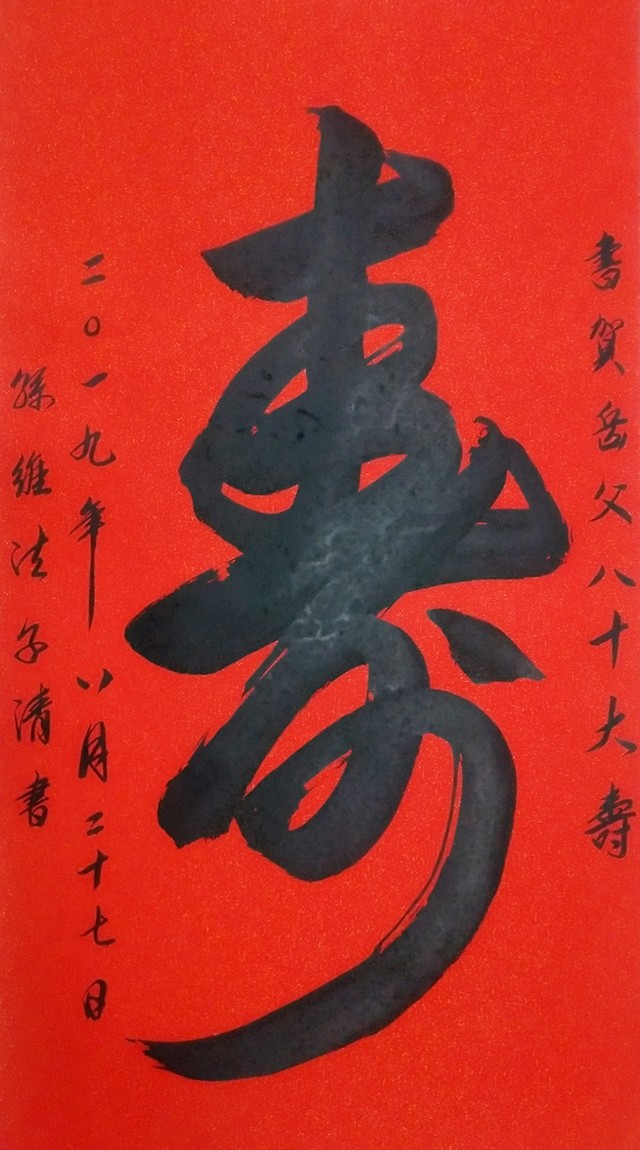 書賀岳父八十大壽
寿
二〇一九年八月二十七日
孫維法子清書